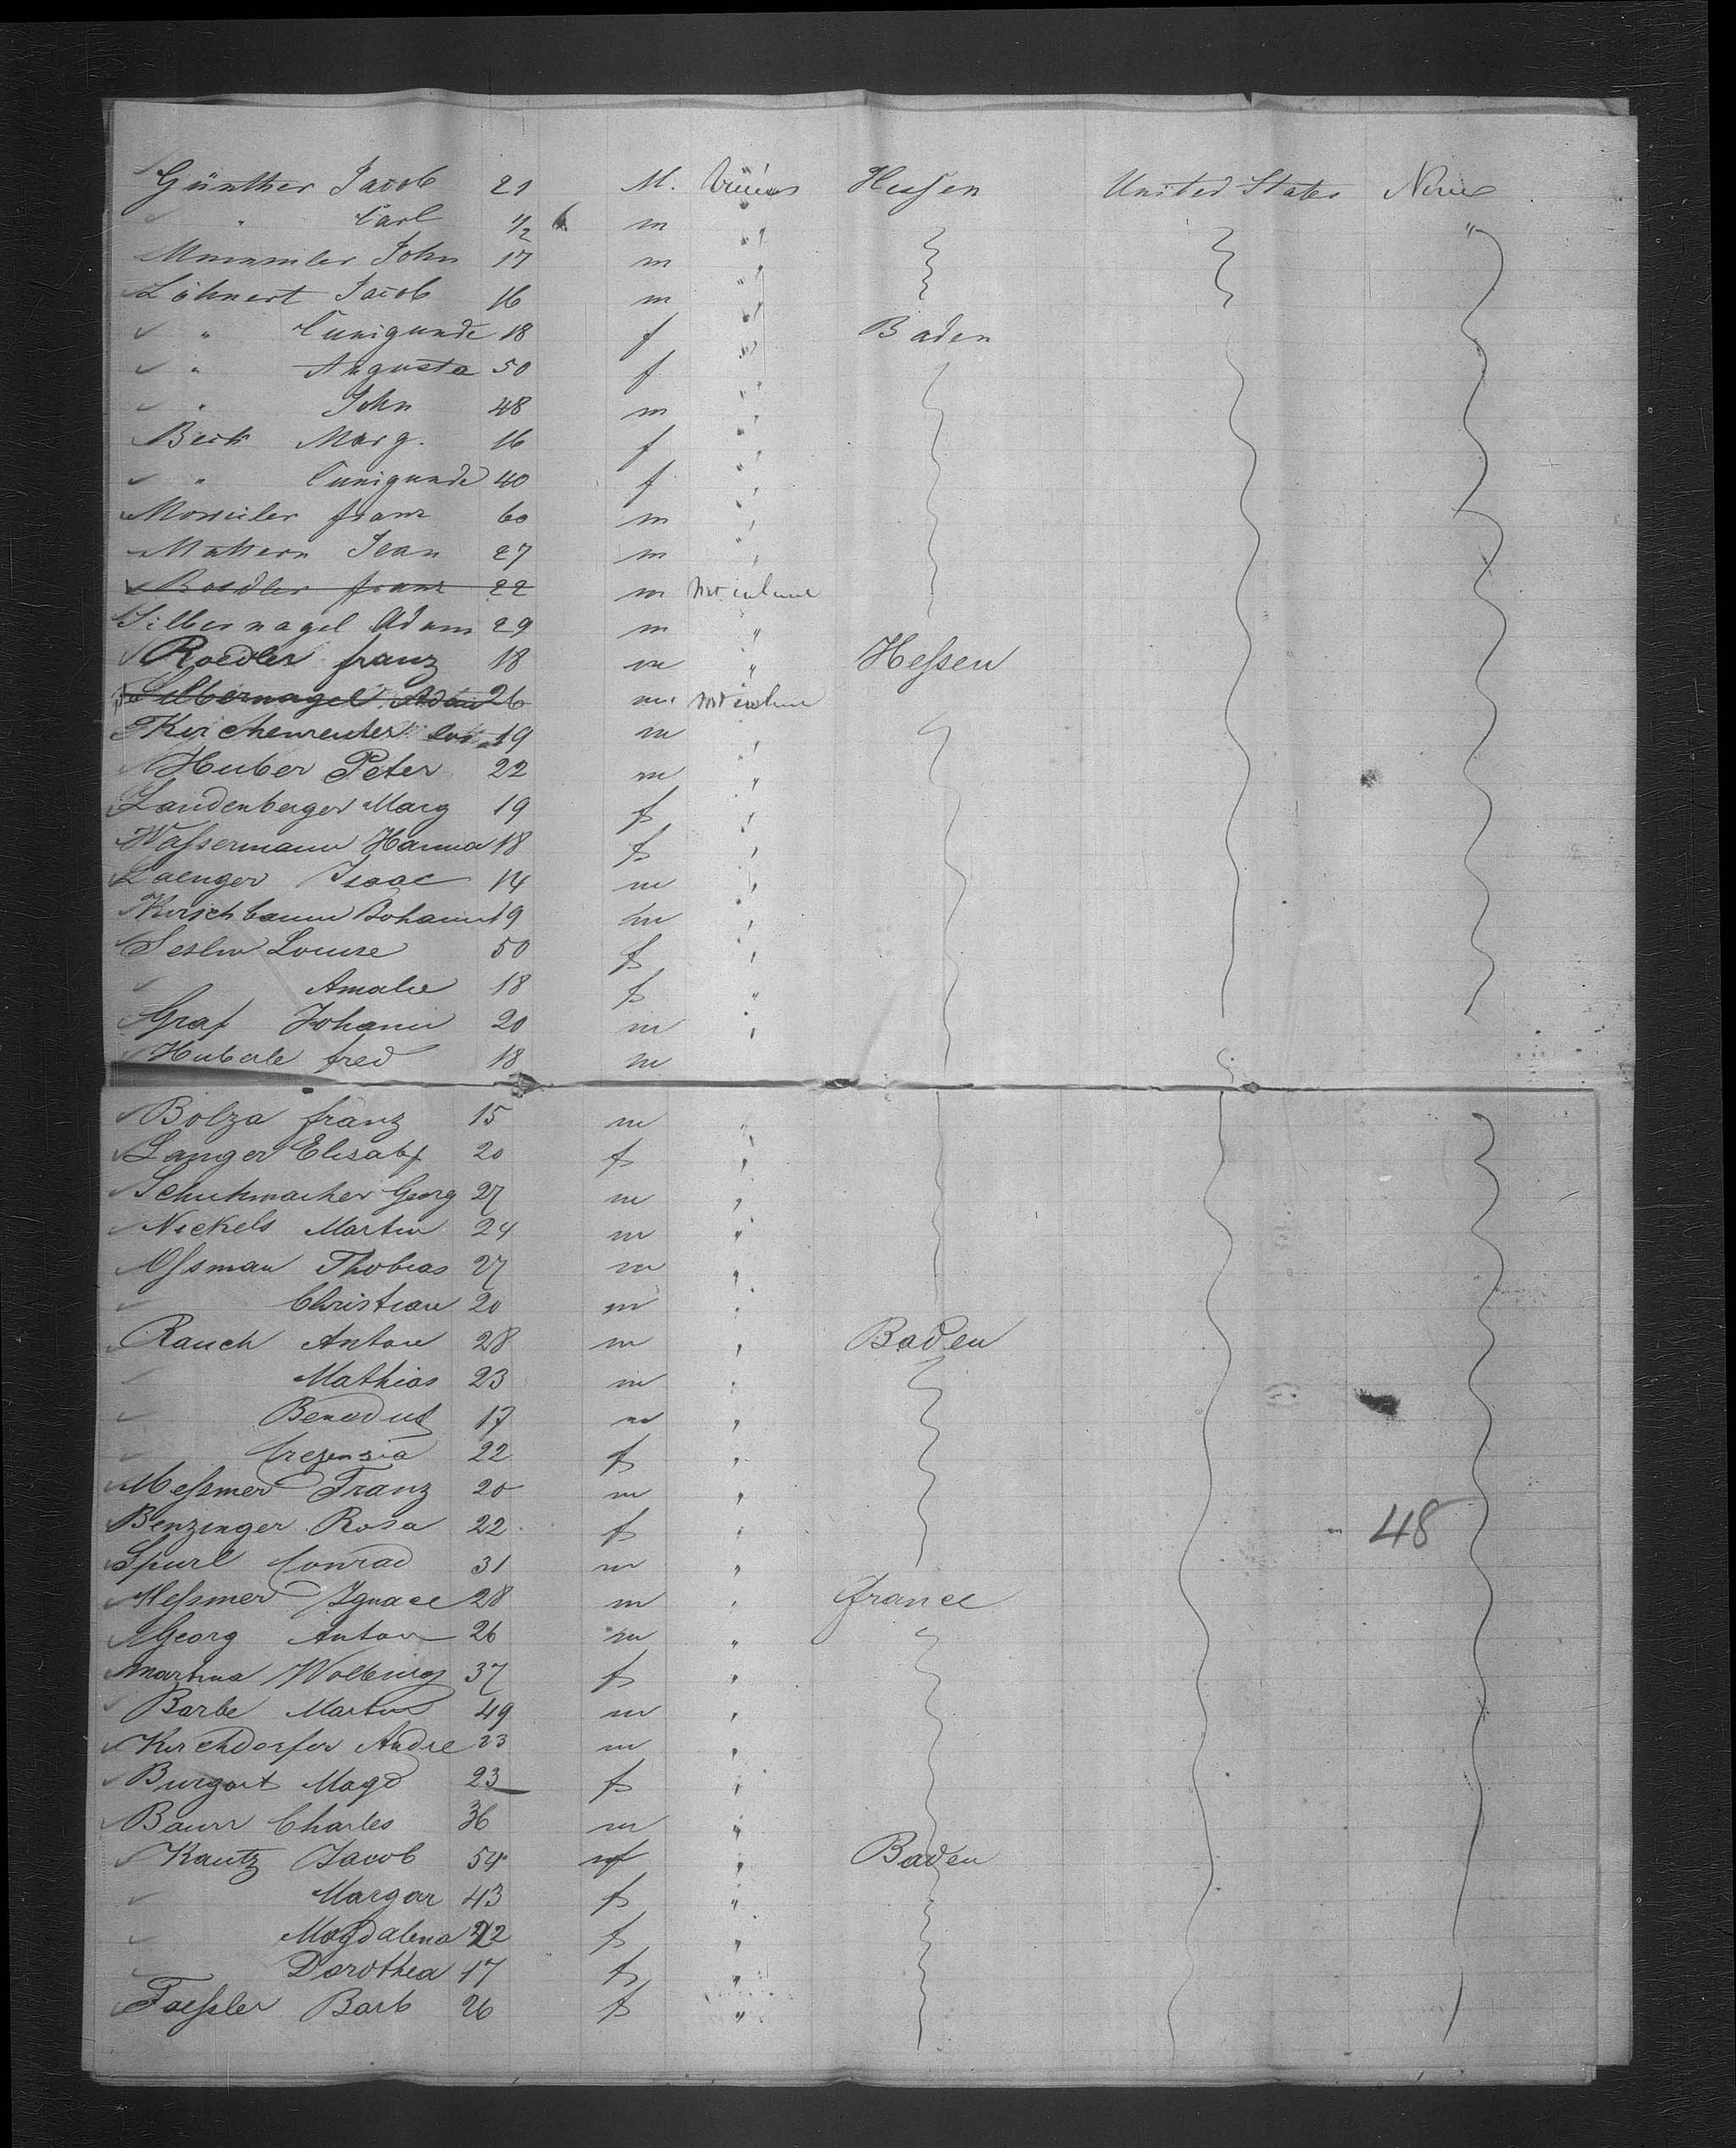 Günther Jacob 21 M. Hessen United States None
" Carl 1/2 6 m " "
John 17 m "
Löhnert Jacob 16 m "
" Cunigunde 18 f " Baden
" Augusta 50 f "
" John 48 m "
Beck Marg. 16 f "
" Cunigunde 40 f "
franz 60 m "
Mattern Jean 27 m "
Roedler franz 22 m Not
Silbernagel Adam 29 m "
Roedler franz 18 m " Hessen
Silbernagel Adam 26 m. Not
Kirchenreuter 19 m "
Huber Peter 22 m "
Landenberger Marg 19 f "
Wassermann Hanna 18 f "
Laenger Isaac 14 m "
Kirschbaum Johann 19 m "
Louise 50 f "
Amalie 18 f "
Graf Johann 20 m "
Huberle fred 18 m
Bolza franz 15 m "
Langer 20 f "
Schuhmacher Georg 27 m "
Nickels Martin 24 m "
Ossman Thobias 27 m "
Christian 20 m "
Rauch Anton 28 m " Baden
Mathias 23 m "
Benedict 17 m "
Crezensia 22 f "
Messmer Franz 20 m "
Benzinger Rosa 22 f " 48
Spurl Conrad 31 m "
Messmer Ignace 28 m " france
Georg Anton 26 m "
Martina Wolburg 37 f "
Barbe Martin 49 m "
Kirchdorfer Andre 23 m "
Burgart Magd 23 f "
Baurr Charles 36 m "
Kautz Jacob 54 m " Baden
Margar 43 f "
Magdalena 22 f "
Dorothea 17 f "
Faessler Barb 26 f "